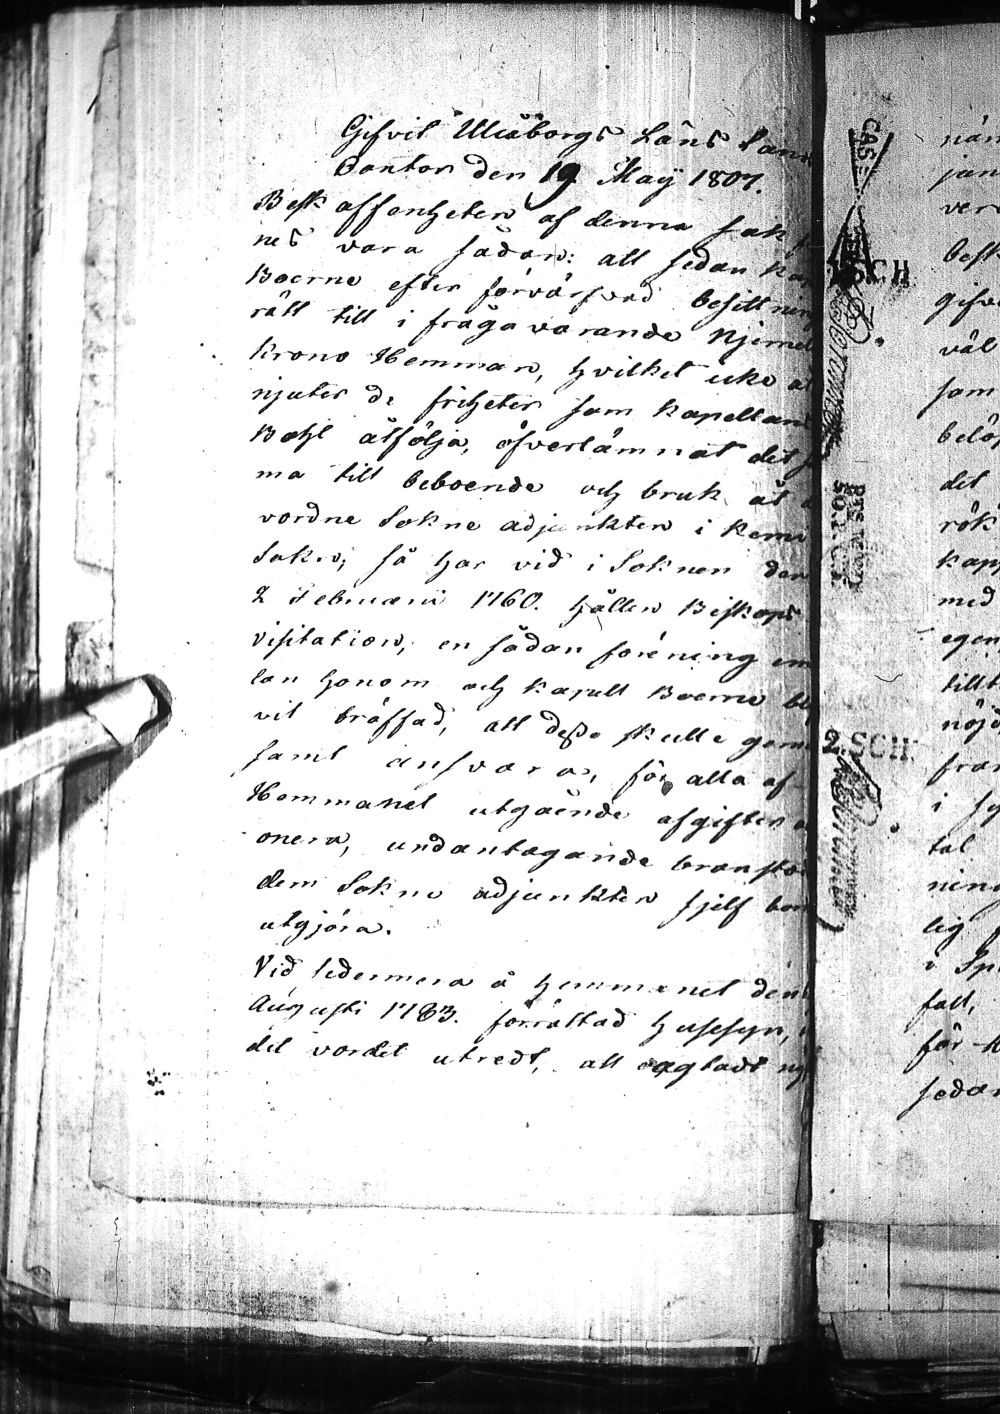 Gifvit Uleåborgs Läns Lan
Contor den 19 Maÿ 1807.
Beskaffenheten af denna sak
nes vara sådan: att sedan Ka
Boerne efter förvärfvad besittning
rätt till i fråga varande Njemel
Krono Hemman, hvilket icke a
njuter de friheter som Kapellans
Bohl åtfölja, öfverlämnat det
ma till beboende och bruk åt
vordne Sokne adjunkten i Kemi
Sokn; så har vid i Soknen den
2 Februarii 1760. hållen Biskops
visitation, en sådan förening em
lan honom och Kapell Boerne bl
vit träffad, att desse skulle
samt ansvara, för alla af
Hemmanet utgående afgifter
onera, undantagande
dem Sokne adjunkten sjelf
utgjöra.
Vid sedermera å hemmanet den
Augusti 1783. förrättad husesyn,
det vordet utredt, att
nän
jun
ver
besk
gifv
väl
som
belö
det
rök
kap
med
egen
tillt
nöjd
fran
i
tal
ning
lig
i
fall,
för
sedan
CASE
SCH
2. SCH